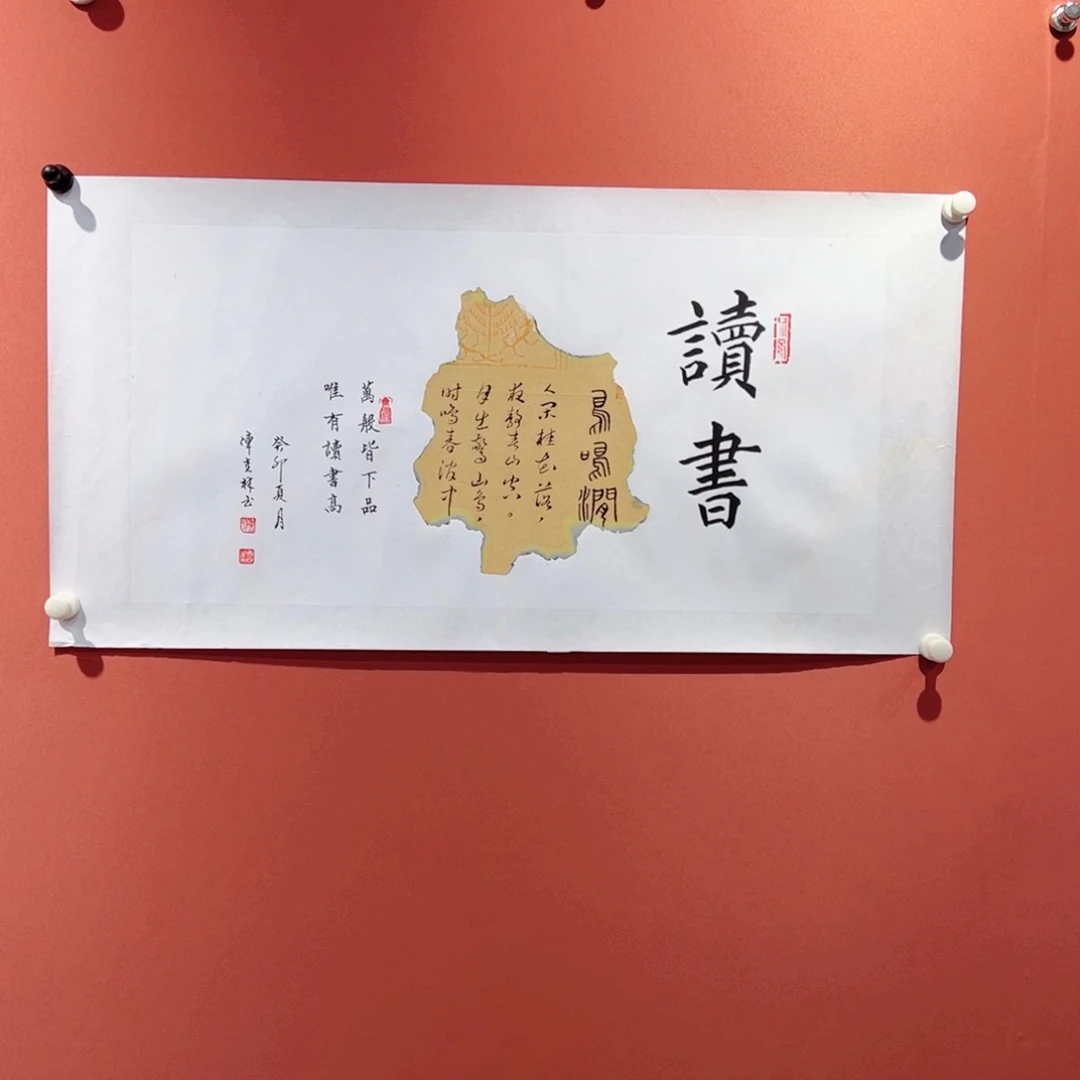 讀書
鳥鳴澗
人閑桂花落，
夜靜春山空。
月出驚山鳥，
时鳴春澗中
萬般皆下品
唯有讀書高
癸卯真月